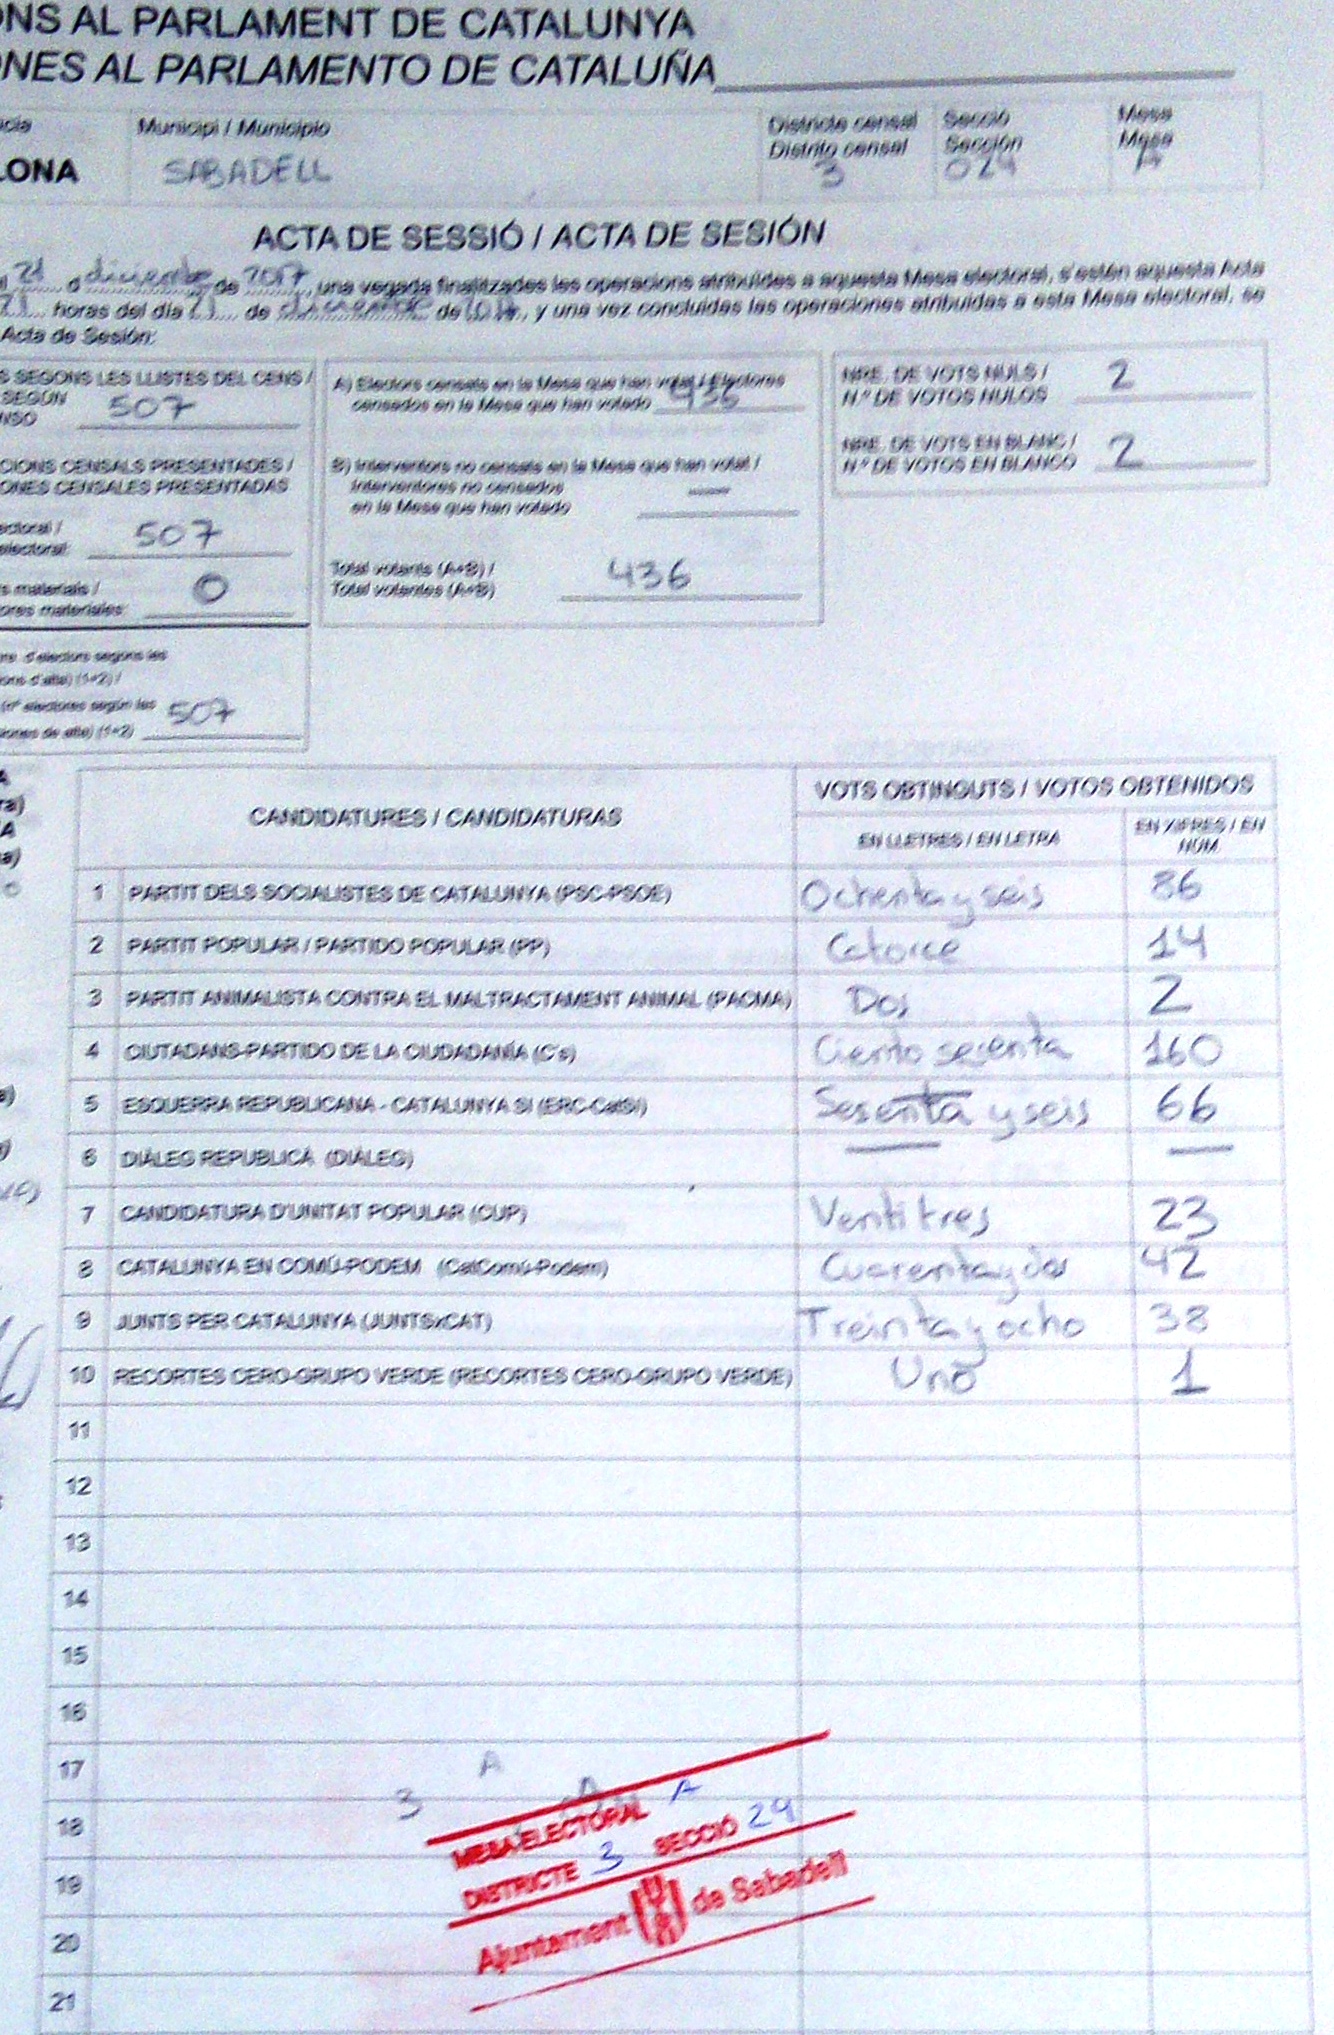 ONS AL PARLAMENT DE CATALUNYA
ONES AL PARLAMENTO DE CATALUÑA
cia Municipi / Municipio Districte censal Secció Mesa
Distrito censal Sección Mesa
LONA SABADELL 3 024 A
ACTA DE SESSIÓ / ACTA DE SESIÓN
21 d diciembre de 2017, una vegada finalitzades les operacions atribuïdes a aquesta Mesa electoral, s'estén aquesta Acta
21 horas del día 21 de diciembre de 2017, y una vez concluidas las operaciones atribuidas a esta Mesa electoral, se
Acta de Sesión:
S SEGONS LES LLISTES DEL CENS /
SEGÚN
NSO 507
CIONS CENSALS PRESENTADES /
ONES CENSALES PRESENTADAS
ectoral /
electoral: 507
s materials /
ores materiales: 0
d'electors segons les
ons d'alta) (1+2) /
(nº electores según las
iones de alta) (1+2) 507
A) Electors censats en la Mesa que han votat / Electores
censados en la Mesa que han votado 436
B) Interventors no censats en la Mesa que han votat /
Interventores no censados
en la Mesa que han votado —
Total votants (A+B) /
Total votantes (A+B) 436
NRE. DE VOTS NULS /
N.º DE VOTOS NULOS 2
NRE. DE VOTS EN BLANC /
N.º DE VOTOS EN BLANCO 2
CANDIDATURES / CANDIDATURAS VOTS OBTINGUTS / VOTOS OBTENIDOS
EN LLETRES / EN LETRA EN XIFRES / EN NÚM.
1 PARTIT DELS SOCIALISTES DE CATALUNYA (PSC-PSOE) Ochenta y seis 86
2 PARTIT POPULAR / PARTIDO POPULAR (PP) Catorce 14
3 PARTIT ANIMALISTA CONTRA EL MALTRACTAMENT ANIMAL (PACMA) Dos 2
4 CIUTADANS-PARTIDO DE LA CIUDADANÍA (C's) Ciento sesenta 160
5 ESQUERRA REPUBLICANA - CATALUNYA SÍ (ERC-CatSí) Sesenta y seis 66
6 DIÀLEG REPUBLICÀ (DIÀLEG) — —
7 CANDIDATURA D'UNITAT POPULAR (CUP) Ventitres 23
8 CATALUNYA EN COMÚ-PODEM (CatComú-Podem) Cuarenta y dos 42
9 JUNTS PER CATALUNYA (JUNTSxCAT) Treinta y ocho 38
10 RECORTES CERO-GRUPO VERDE (RECORTES CERO-GRUPO VERDE) Uno 1
11
12
13
14
15
16
17 A
18 3
19
20
21
MESA ELECTORAL A
DISTRICTE 3 SECCIÓ 24
Ajuntament de Sabadell